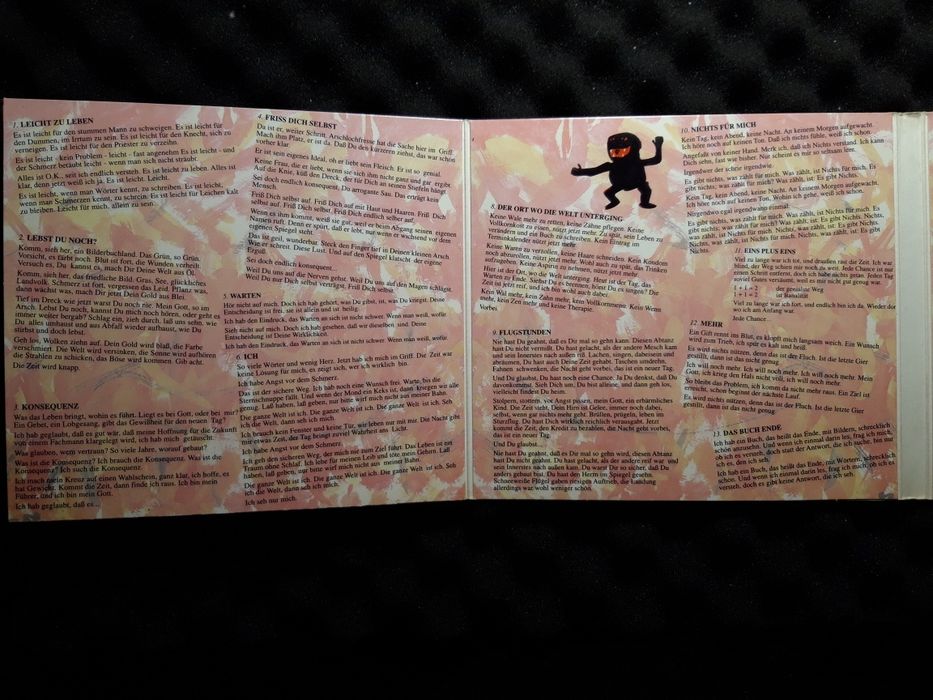 1. LEICHT ZU LEBEN
Es ist leicht für den stummen Mann zu schweigen. Es ist leicht für
den Dummen, im Irrtum zu sein. Es ist leicht für den Knecht, sich zu
verneigen. Es ist leicht für den Priester zu verzeihn.
Es ist leicht - kein Problem - leicht - fast angenehm Es ist leicht - und
der Schmerz betäubt leicht - wenn man sich nicht sträubt.
Alles ist O.K., seit ich endlich versteh. Es ist leicht zu leben. Alles ist
klar, denn jetzt weiß ich ja. Es ist leicht. Leicht.
Es ist leicht, wenn man Wörter kennt, zu schreiben. Es ist leicht,
wenn man Schmerzen kennt, zu schrein. Es ist leicht für den kalten
zu bleiben. Leicht für mich, allein zu sein.
2. LEBST DU NOCH?
Komm, sieh her, ein Bilderbuchland. Das Grün, so Grün.
Vorsicht, es färbt noch. Blut ist fort, die Wunden verheilt.
Versuch es, Du kannst es, mach Dir Deine Welt aus Öl.
Komm, sieh her, das friedliche Bild. Gras, See, glückliches
Landvolk. Schmerz ist fort, vergessen das Leid. Pflanz was,
dann wächst was, mach Dir jetzt Dein Gold aus Blei.
Tief im Dreck wie jetzt warst Du noch nie. Mein Gott, so im
Arsch. Lebst Du noch, kannst Du mich noch hören, oder geht es
immer weiter bergab? Schlag ein, zieh durch, laß uns sehn, wie
Du alles umhaust und aus Abfall wieder aufbaust, wie Du
stirbst und doch lebst.
Geh los, Wolken ziehn auf. Dein Gold wird blaß, die Farbe
verschmiert. Die Welt wird versinken, die Sonne wird aufhören
die Strahlen zu schicken, das Böse wird kommen. Gib acht.
Die Zeit wird knapp.
3. KONSEQUENZ
Was das Leben bringt, wohin es führt. Liegt es bei Gott, oder bei mir?
Ein Gebet, ein Lobgesang, gibt das Gewißheit für den neuen Tag?
Ich hab geglaubt, daß es gut wär, daß meine Hoffnung für die Zukunft
von einem Fachmann klargelegt wird, ich hab mich getäuscht.
Was glauben, wem vertraun? So viele Jahre, worauf gebaut?
Was ist die Konsequenz? Ich brauch die Konsequenz. Was ist die
Konsequenz? Ich such die Konsequenz.
Ich mach mein Kreuz auf einen Wahlschein, ganz klar, ich hoffe, es
hat Gewicht. Kommt die Zeit, dann finde ich raus. Ich bin mein
Führer, und ich bin mein Gott.
Ich hab geglaubt, daß es...
4. FRISS DICH SELBST
Du ist er, weiter Schritt. Arschlochfresse hat die Sache hier im Griff
Mach ihm Platz, er ist da. Daß Du den kürzeren ziehst, das war schon
vorher klar.
Er ist sein eigenes Ideal, oh er liebt sein Fleisch. Er ist so genial.
Keine Frau, die er liebt, wenn sie sich ihm nicht ganz und gar ergibt.
Auf die Knie, küß den Dreck, der für Dich an seinen Stiefeln hängt
Mensch.
Doch endlich konsequent, Du arrogante Sau. Das erträgt kein
Friß Dich selbst auf. Friß Dich auf mit Haut und Haaren. Friß Dich
selbst auf. Friß Dich selbst auf. Friß Dich endlich selber auf.
Wenn es ihm kommt, weiß sie gut, weil er beim Abgang seinen eigenen
Namen ruft. Denn er spürt, daß er lebt, nur wenn er wichsend vor dem
eigenen Spiegel steht.
Das ist geil, wunderbar. Steck den Finger tief in Deinen kleinen Arsch
Wie er schreit. Diese Lust. Und auf den Spiegel klatscht der eigene
Erguß.
Sei doch endlich konsequent...
Weil Du uns auf die Nerven gehst. Weil Du uns auf den Magen schlägst
Weil Du nur Dich selbst verträgst, Friß Dich selbst.
5. WARTEN
Hör nicht auf mich. Doch ich hab gehört, was Du gibst, ist, was Du kriegst. Deine
Entscheidung ist frei, sie ist allein und ist heilig.
Ich hab den Eindruck, das Warten an sich ist nicht schwer. Wenn man weiß, wofür.
Sieh nicht auf mich. Doch ich hab gesehen, daß wir dieselben sind. Deine
Entscheidung ist Deine Wirklichkeit.
Ich hab den Eindruck, das Warten an sich ist nicht schwer. Wenn man weiß, wofür.
6. ICH
So viele Wörter und wenig Herz. Jetzt hab ich mich im Griff. Die Zeit war
keine Lösung für mich, es zeigt sich, wer ich wirklich bin.
Ich habe Angst vor dem Schmerz.
Das ist der sichere Weg. Ich hab noch eine Wunsch frei. Warte, bis die
Sternschnuppe fällt. Und wenn der Mond ein Keks ist, dann kriegen wir alle
genug. Laß haben, laß geben, nur bitte wirf mich nicht aus meiner Bahn.
Die ganze Welt ist ich. Die ganze Welt ist ich. Die ganze Welt ist ich. Seh
ich die Welt, dann seh ich mich.
Ich brauch kein Fenster und keine Tür, wir leben nur mit mir. Die Nacht gibt
mir etwas Zeit, der Tag bringt zuviel Wahrheit ans Licht.
Ich habe Angst vor dem Schmerz.
Ich geh den sicheren Weg, der mich nie zum Ziel führt. Das Leben ist ein
Traum ohne Schlaf. Ich lebe für meinen Leib und töte mein Gehirn. Laß
haben, laß geben, nur bitte wirf mich nicht aus meiner Bahn.
Die ganze Welt ist ich. Die ganze Welt ist ich. Die ganze Welt ist ich. Seh
ich die Welt, dann seh ich mich.
Ich seh nur mich.
8. DER ORT WO DIE WELT UNTERGING
Keine Wale mehr zu retten, keine Zähne pflegen. Keine
Vollkornkost zu essen, nützt jetzt mehr. Zu spät, sein Leben zu
verändern und ein Buch zu schreiben. Kein Eintrag im
Terminkalender nützt jetzt mehr.
Keine Wörter zu verzollen, keine Haare schneiden. Kein Kondom
noch abzurollen, nützt jetzt mehr. Wohl auch zu spät, das Trinken
aufzugeben. Keine Aspirin zu nehmen, nützt jetzt mehr.
Hier ist der Ort, wo die Welt unterging. Heute ist der Tag, das
Warten zu Ende. Siehst Du es brennen, hörst Du es singen? Die
Zeit ist jetzt reif, und ich bin wohl auch dabei.
Kein Wal mehr, kein Zahn mehr, kein Vollkornmenü. Kein Wenn
mehr, kein Zen mehr und keine Therapie.
Vorbei
9. FLUGSTUNDEN
Nie hast Du geahnt, daß es Dir mal so gehn kann. Diesen Abtanz
hast Du nicht vermißt. Du hast gelacht, als der andere Mensch kam
und sein Innerstes nach außen riß. Lachen, singen, dabeisein und
abräumen, Du hast auch Deine Zeit gehabt. Tauchen umdrehn,
Fahnen schwenken, die Nacht geht vorbei, das ist ein neuer Tag.
Und Du glaubst, Du hast noch eine Chance. Ja Du denkst, daß Du
davonkommst. Sieh Dich um, Du bist alleine, und dann geh los,
vielleicht findest Du heim.
Stolpern, stottern, vor Angst passen, mein Gott, ein erbärmliches
Kind. Die Zeit steht. Dein Hirn ist Gelee, immer noch dabei,
selbst, wenn gar nichts mehr geht. Brüllen, prügeln, leben im
Sturzflug. Du hast Dich wirklich reichlich verausgabt. Jetzt
kommt die Zeit, den Kredit zu bezahlen, die Nacht geht vorbei,
das ist ein neuer Tag.
Und Du glaubst, ...
Nie hast Du geahnt, daß es Dir mal so gehn wird, diesen Abtanz
hast Du nicht geahnt. Du hast gelacht, als der andere reif war und
sein Innerstes nach außen kam. Du warst Dir so sicher, daß Du
anders gebaut bist. Du hast den Herrn im Spiegel gesehn.
Schneeweiße Flügel gaben riesigen Auftrieb, die Landung
allerdings war wohl weniger schön.
10. NICHTS FÜR MICH
Kein Tag, kein Abend, keine Nacht. An keinem Morgen aufgewacht.
Ich höre noch auf keinen Ton. Daß ich nichts fühle, weiß ich schon.
Angefaßt von keiner Hand. Merk ich, daß ich Nichts versteh. Ich kann
Dich sehn, fast wie bisher. Nur scheint es mir so seltsam leer.
Irgendwer der schier irgendwie.
Es gibt nichts, was zählt für mich. Was zählt, ist Nichts für mich. Es
gibt nichts, was zählt für mich. Was zählt, ist. Es gibt Nichts.
Kein Tag, kein Abend, keine Nacht. An keinem Morgen aufgewacht.
Ich höre noch auf keinen Ton. Wohin ich gehe, weiß ich schon.
Nirgendwo egal irgendwo einmal.
Es gibt nichts, was zählt für mich. Was zählt, ist Nichts für mich. Es
gibt nichts, was zählt für mich. Was zählt, ist. Es gibt Nichts. Nichts,
was zählt, ist Nichts für mich. Es gibt Nichts, was zählt für mich.
Nichts, was zählt, ist Nichts für mich. Nichts, was zählt, ist. Es gibt
Nichts.
11. EINS PLUS EINS
Viel zu lange war ich tot, und draußen rast die Zeit. Ich war
blind, der Weg schien mir noch zu weit. Jede Chance ist nur
einen Schritt entfernt, doch ich habe nichts getan. Jeden Tag
soviel Gutes versäumt, weil es mir nicht gut genug war.
1 + 1 = 3 der geniale Weg
1 + 1 = 2 ist Banalität
Viel zu lange war ich fort, und endlich bin ich da. Wieder dor
wo ich am Anfang war.
Jede Chance...
12. MEHR
Ein Gift rennt ins Blut, es klopft mich langsam weich. Ein Wunsch
wird zum Trieb, ich spür es kalt und heiß.
Es wird nichts nützen, denn das ist der Fluch. Ist die letzte Gier
gestillt, dann ist das nicht genug.
Ich will noch mehr. Ich will noch mehr. Ich will noch mehr. Mein
Gott, ich krieg den Hals nicht voll, ich will noch mehr.
So bleibt das Problem, ich komm da nicht mehr raus. Ein Ziel ist
erreicht, schon beginnt der nächste Lauf.
Es wird nichts nützen, denn das ist der Fluch. Ist die letzte Gier
gestillt, dann ist das nicht genug.
13. DAS BUCH ENDE
Ich hab ein Buch, das heißt das Ende, mit Bildern, schrecklich
schön anzusehn. Und wenn ich einmal darin lies, frag ich mich,
ob ich es versteh, doch statt der Antwort, die ich suche, bin nur
ich es, den ich seh.
Ich hab ein Buch, das heißt das Ende, mit Wörtern, schrecklich
schön. Und wenn ich einmal darin lies, frag ich mich, ob ich es
versteh, doch es gibt keine Antwort, die ich seh.